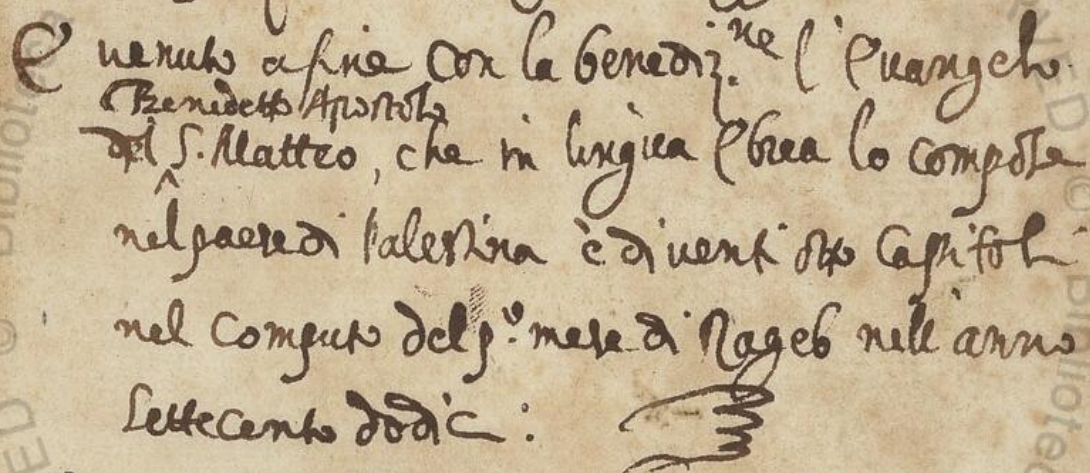 È venuto a fine con la benediz.ne l'Evangelo
Benedetto Apostolo
del S. Matteo, che in lingua Ebrea lo compose
nel paese di Palestina è di venti otto Capitoli
nel Computo del p.º mese di Rageb nell'anno
Settecento dodici: